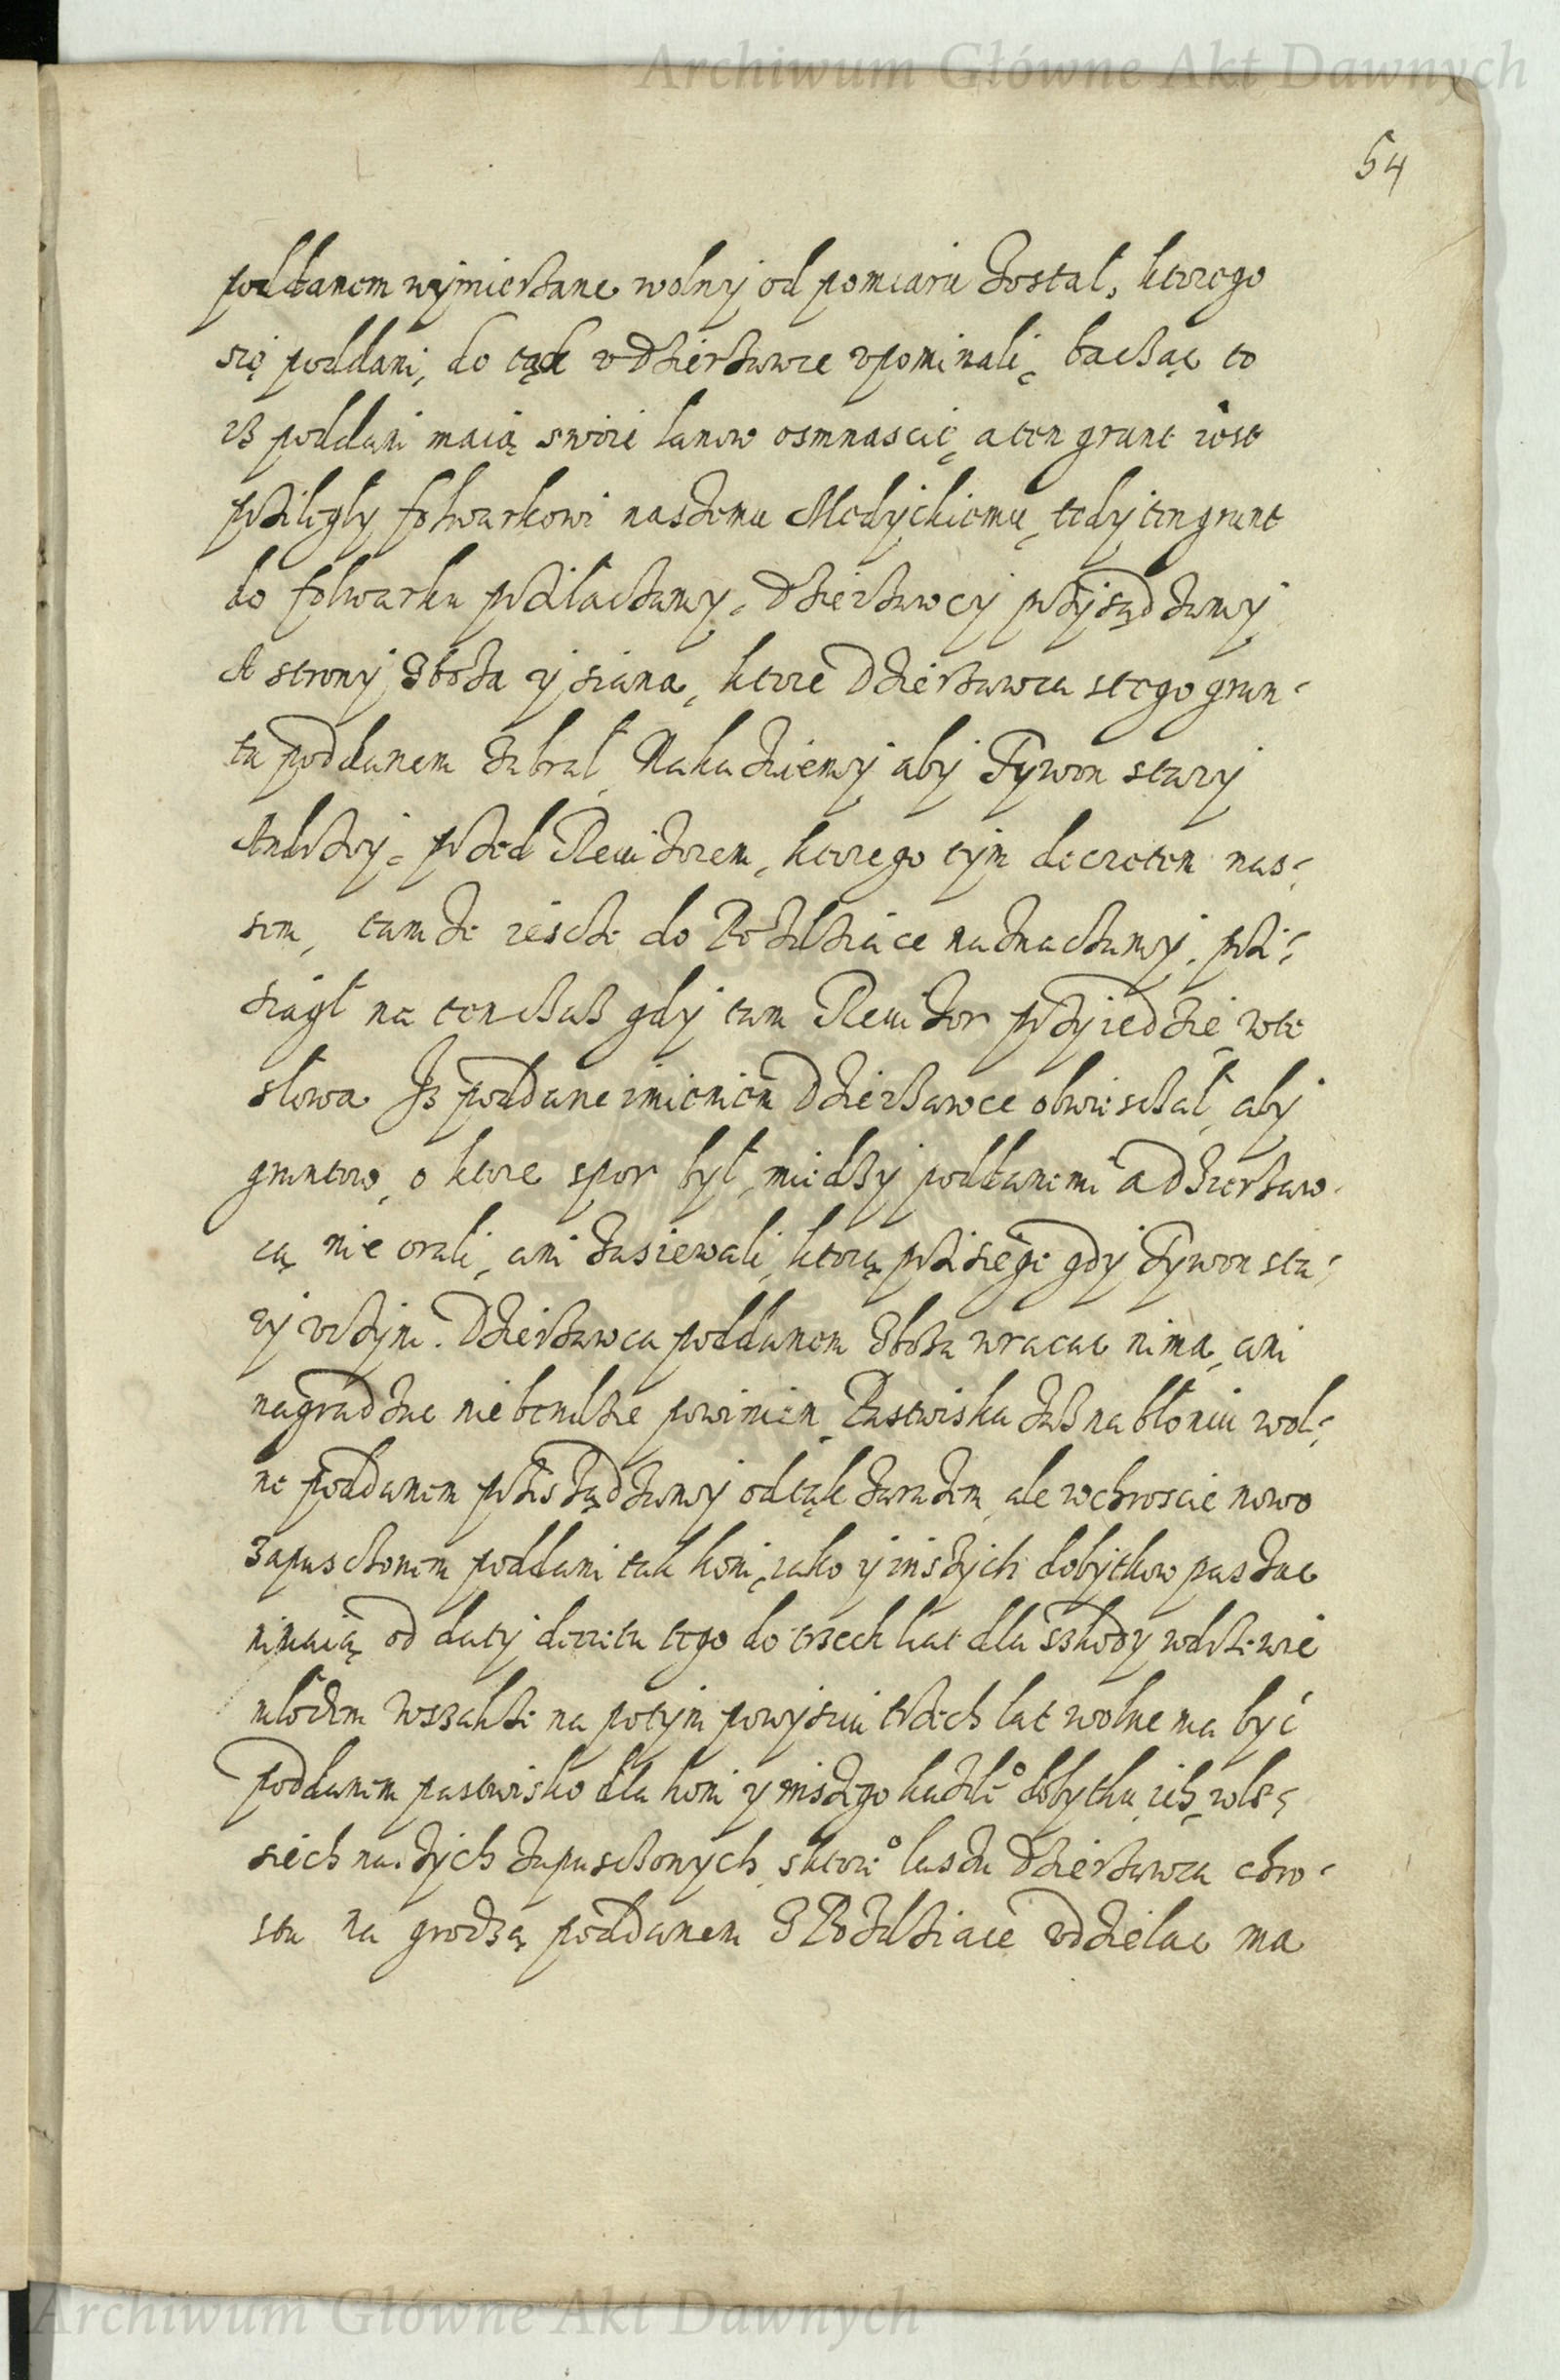 Archiwum Główne Akt Dawnych
54
poddanem wymierzane wolny od pomiaru został, ktorego
się poddani, do tąd v dzierzawce vpominali, bacząc to
iz poddani maią swoie łanow osmnascie, a ten grunt iest
prziległy folwarkowi naszemu Medyckiemu, tedy ten grunt
do folwarku przilaczamy, Dzierzawcy przysądzamy
A strony zboza y siana, ktore Dzierzawca s tego grun-
tu poddanem zabrał, Nakazuiemy aby Tywon stary
Andrzey, przed Reuizorem, ktorego tym decretem nas-
sem, tamze iescze do Pozdziace naznaczamy, przi-
siągł na ten czas gdy tam Reuizor przyiedzie, w te
słowa Iz poddane imieniem Dzierzawce obwiesczał, aby
gruntow, o ktore spor był, miedzy poddanemi a dzierzaw-
cą nie orali, ani zasiewali, ktorą przisięge gdy Tywon sta-
ry vczyni. Dzierzawca poddanem zboza wracac nima, ani
nagradzac nie bendzie powinien, Pastwiska zas na błoniu wol-
ne poddanem przisządzamy odtąk zarazem, ale w chroscie nowo
zapusczonem poddani tak koni, iako y inszych dobytkow paszac
nimaią od daty decretu tego do trzech lat dla szkody w drzewie
młodem wszakze na potym po wysciu trzech lat wolne ma być
poddanem pastwisko dla koni y inszego kazde° dobytku ich, w le-
siech naszych zapusczonych, s ktore° lasza Dzierzawca chro-
stu na grodzą poddanem z Pozdziace vdzielac ma
Archiwum Główne Akt Dawnych